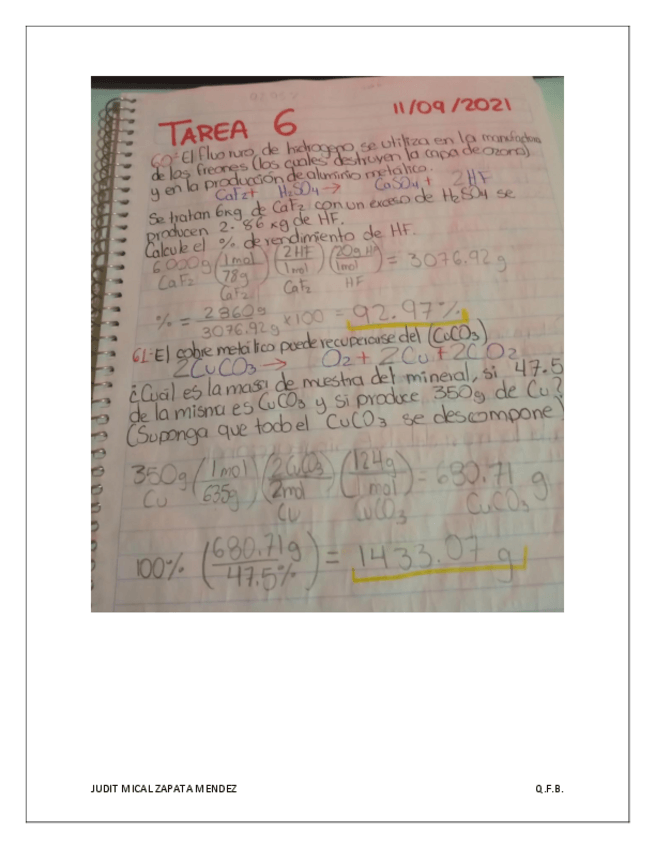 11/09/2021
TAREA 6
60- El fluoruro de hidrogeno se utiliza en la manufactura
de los freones (los cuales destruyen la capa de ozono)
y en la producción de aluminio metálico.
CaF2+ H2SO4 → CaSO4+ 2HF
Se tratan 6kg de CaF2 con un exceso de H2SO4 se
producen 2.86 kg de HF.
Calcule el % de rendimiento de HF.
6000g (1mol/78g) (2HF/1mol) (20g HF/1mol) = 3076.92 g
CaF2 CaF2 CaF2 HF
% = 2860g/3076.92g x100 = 92.97%
61- El cobre metálico puede recuperarse del (CuCO3)
2CuCO3 → O2 + 2Cu + 2CO2
¿Cuál es la masa de muestra del mineral, si 47.5
de la misma es CuCO3 y si produce 350g de Cu?
(Suponga que todo el CuCO3 se descompone)
350g (1mol/635g) (2CuCO3/2mol) (124g/1mol) = 680.71 g
Cu Cu CuCO3 CuCO3
100% (680.71g/47.5%) = 1433.07 g
JUDIT MICAL ZAPATA MENDEZ Q.F.B.